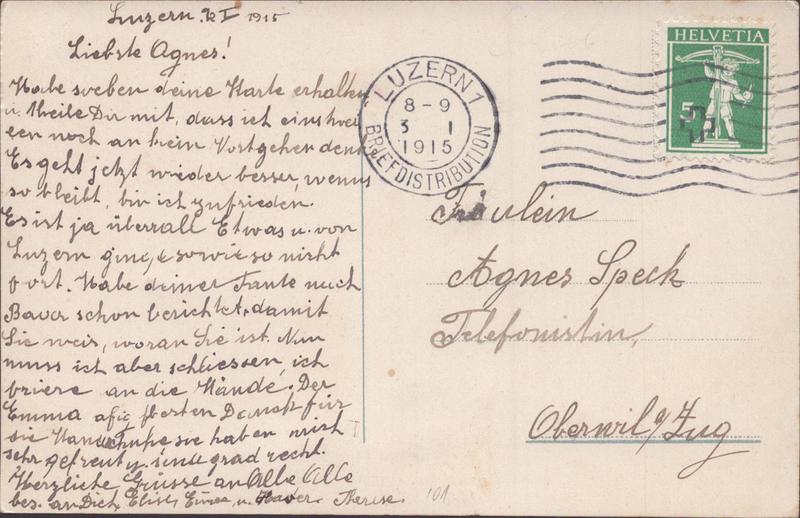 Luzern. 2 I 1915
Liebste Agnes!
Habe soeben deine Karte erhalten
u. theile Dir mit, dass ich einstwei
len noch an kein Vortgehen denk
Es geht jetzt wieder besser, wenns
so bleibt, bin ich zufrieden.
Es ist ja überrall Etwas u. von
Luzern ging, sowieso nicht
fort. Habe deiner Tante nach
Baar schon berichtet, damit
Sie weis, woran Sie ist. Nun
muss ich aber schliessen, ich
friere an die Hände. Der
Emma Dank für
die Handschuhe sie haben mich
sehr gefreut u. sind grad recht.
Herzliche Grüsse an Alle Alle
bes. an Dich, Elise, u. Therese.
LUZERN 1
8-9
3 I
1915
BRIEFDISTRIBUTION
HELVETIA
5
Fräulein
Agnes Speck
Telefonistin,
Oberwil a/Zug
101